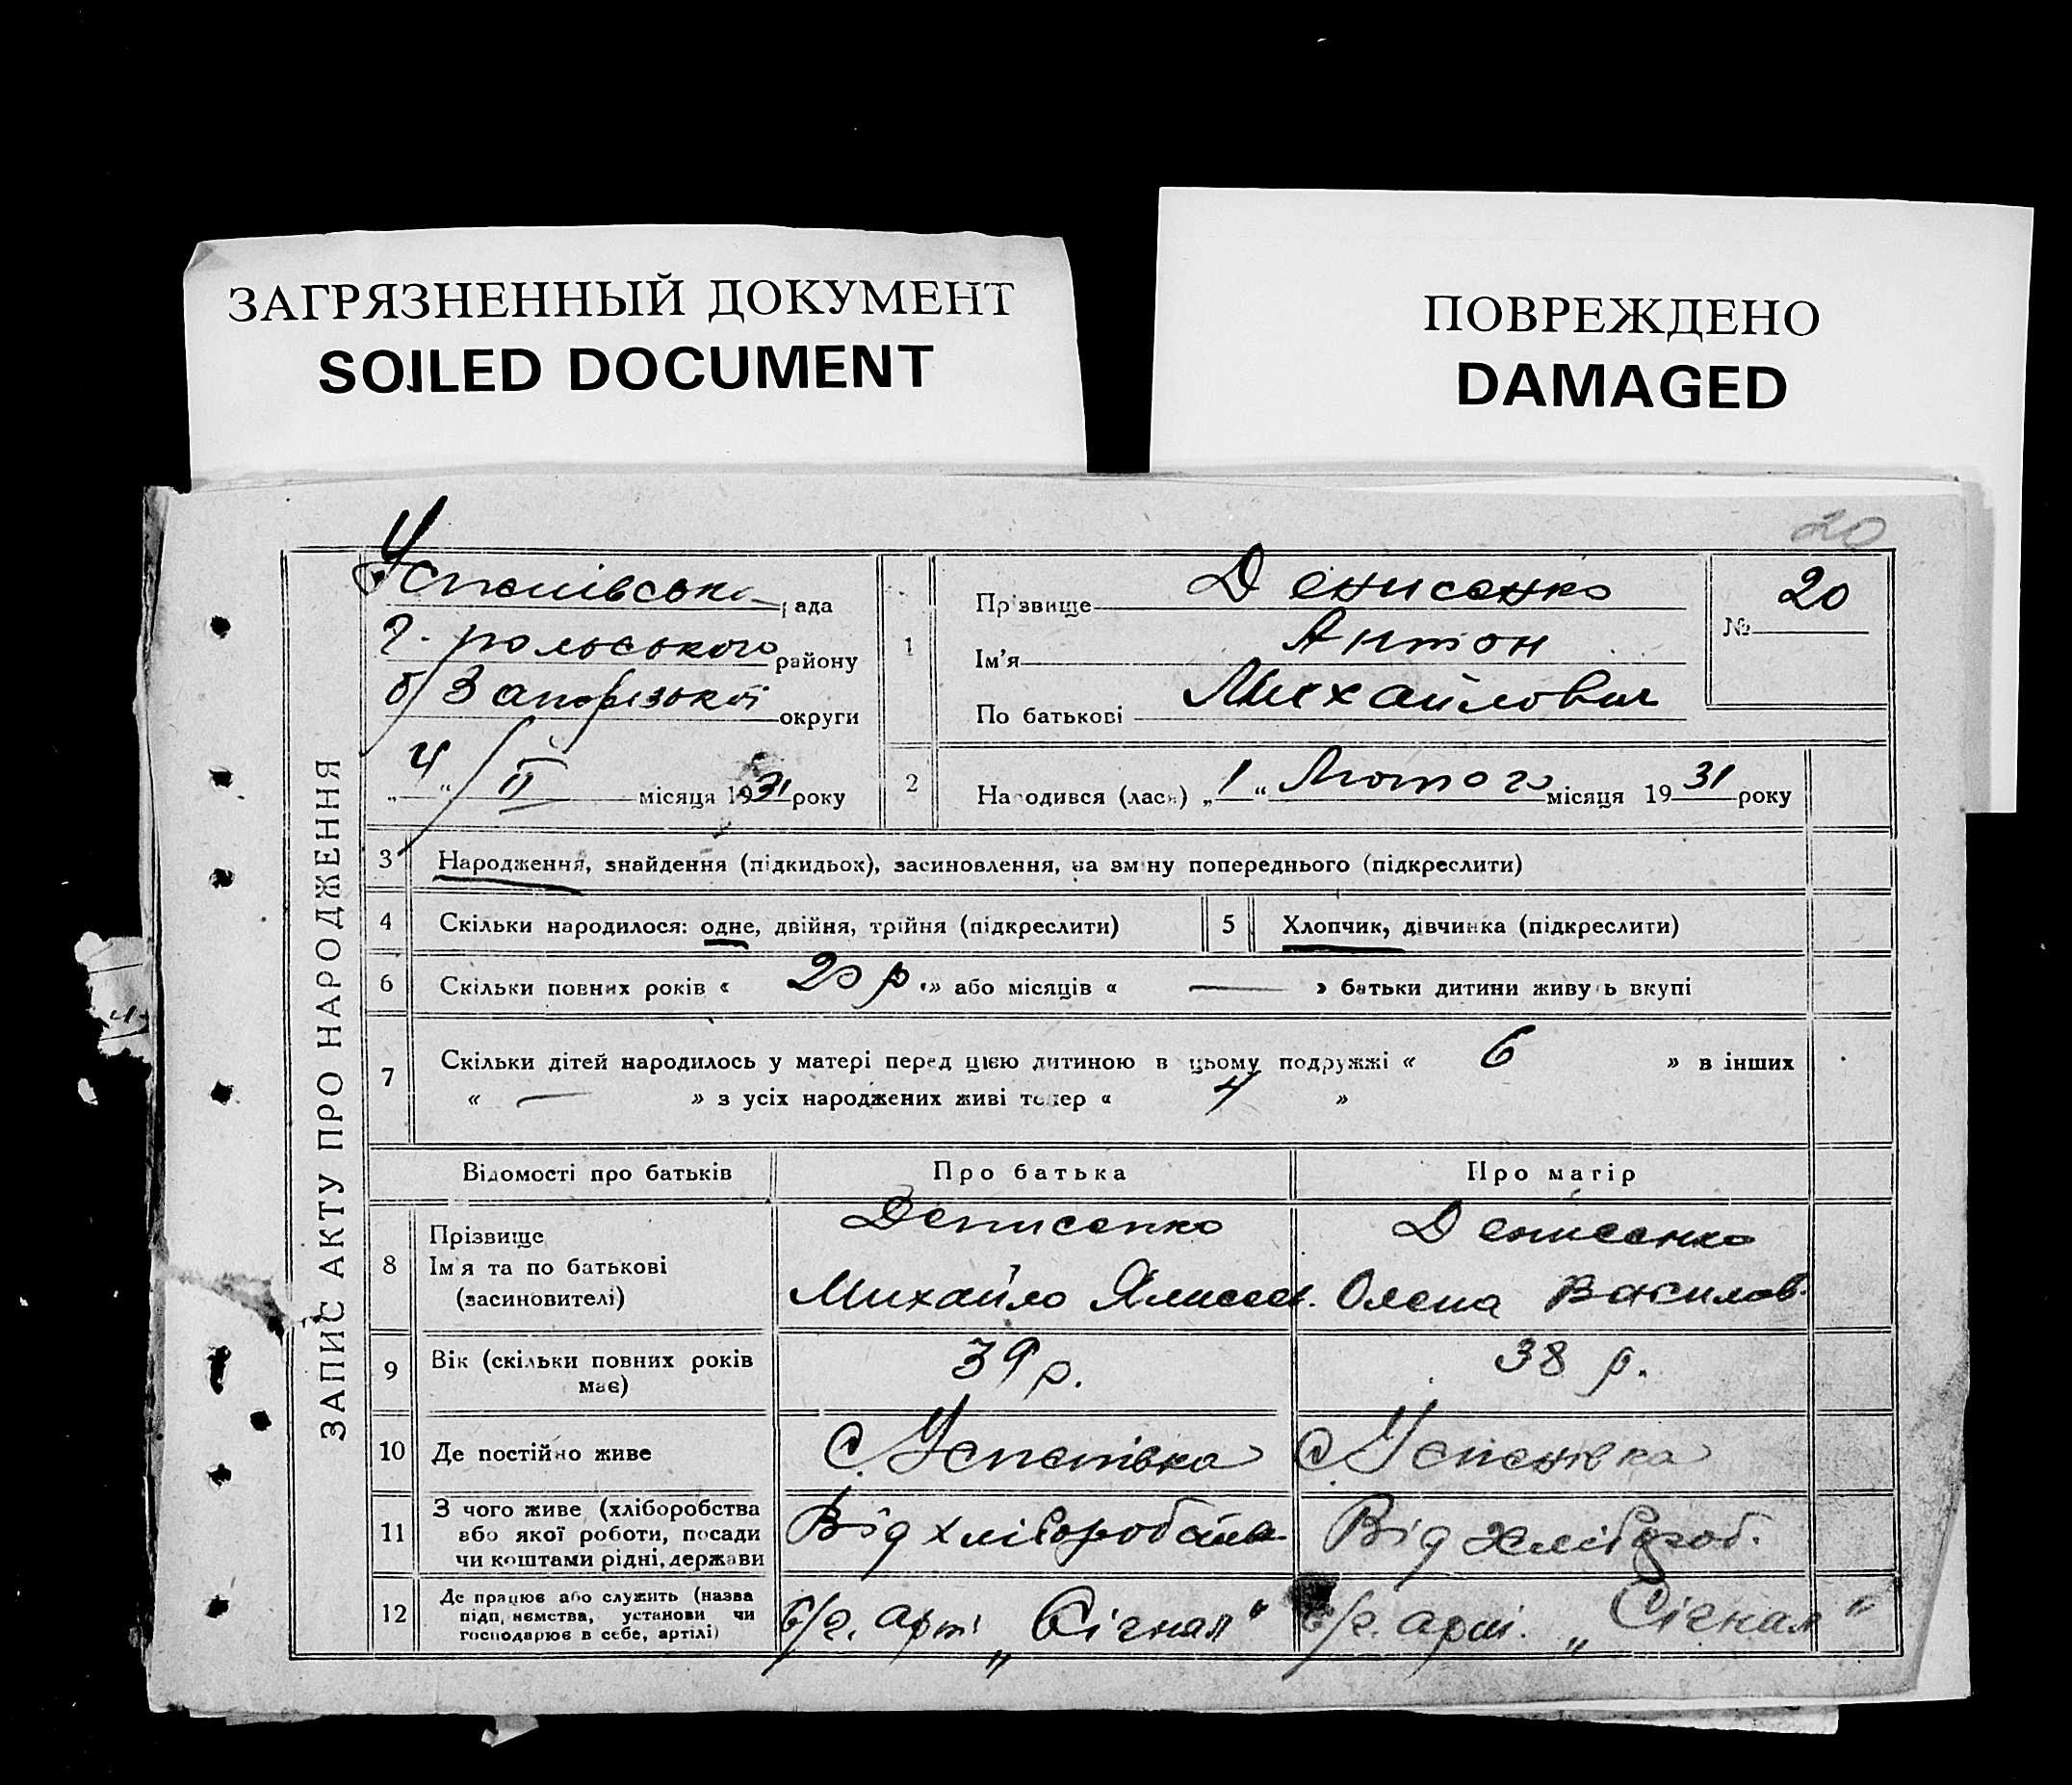 ЗАГРЯЗНЕННЫЙ ДОКУМЕНТ
SOILED DOCUMENT
ПОВРЕЖДЕНО
DAMAGED
20
ЗАПИС АКТУ ПРО НАРОДЖЕННЯ
Успенівська рада
Г. польського району
б/Запорізької округи
„4“ II місяця 1931 року
1
Прізвище Денисенко
Ім'я Антон
По батькові Михайлович
№ 20
2 Народився (лася) „1“ Лютого місяця 1931 року
3 Народження, знайдення (підкидьок), засиновлення, на зміну попереднього (підкреслити)
4 Скільки народилося: одне, двійня, трійня (підкреслити) 5 Хлопчик, дівчинка (підкреслити)
6 Скільки повних років « 20 р. » або місяців « — » батьки дитини живуть вкупі
7 Скільки дітей народилось у матері перед цією дитиною в цьому подружжі « 6 » в інших
« — » з усіх народжених живі тепер « 4 »
Відомості про батьків Про батька Про матір
8 Прізвище Денисенко Денисенко
Ім'я та по батькові Михайло Олена Василов.
(засиновителі)
9 Вік (скільки повних років має) 39 р. 38 р.
10 Де постійно живе с. Успенівка с. Успенівка
11 З чого живе (хліборобства
або якої роботи, посади
чи коштами рідні, держави Від хліборобства Від хлібороб.
12 Де працює або служить (назва
підприємства, установи чи
господарює в себе, артілі) с/г. арт. „Сігнал“ с/г. арт. „Сігнал“